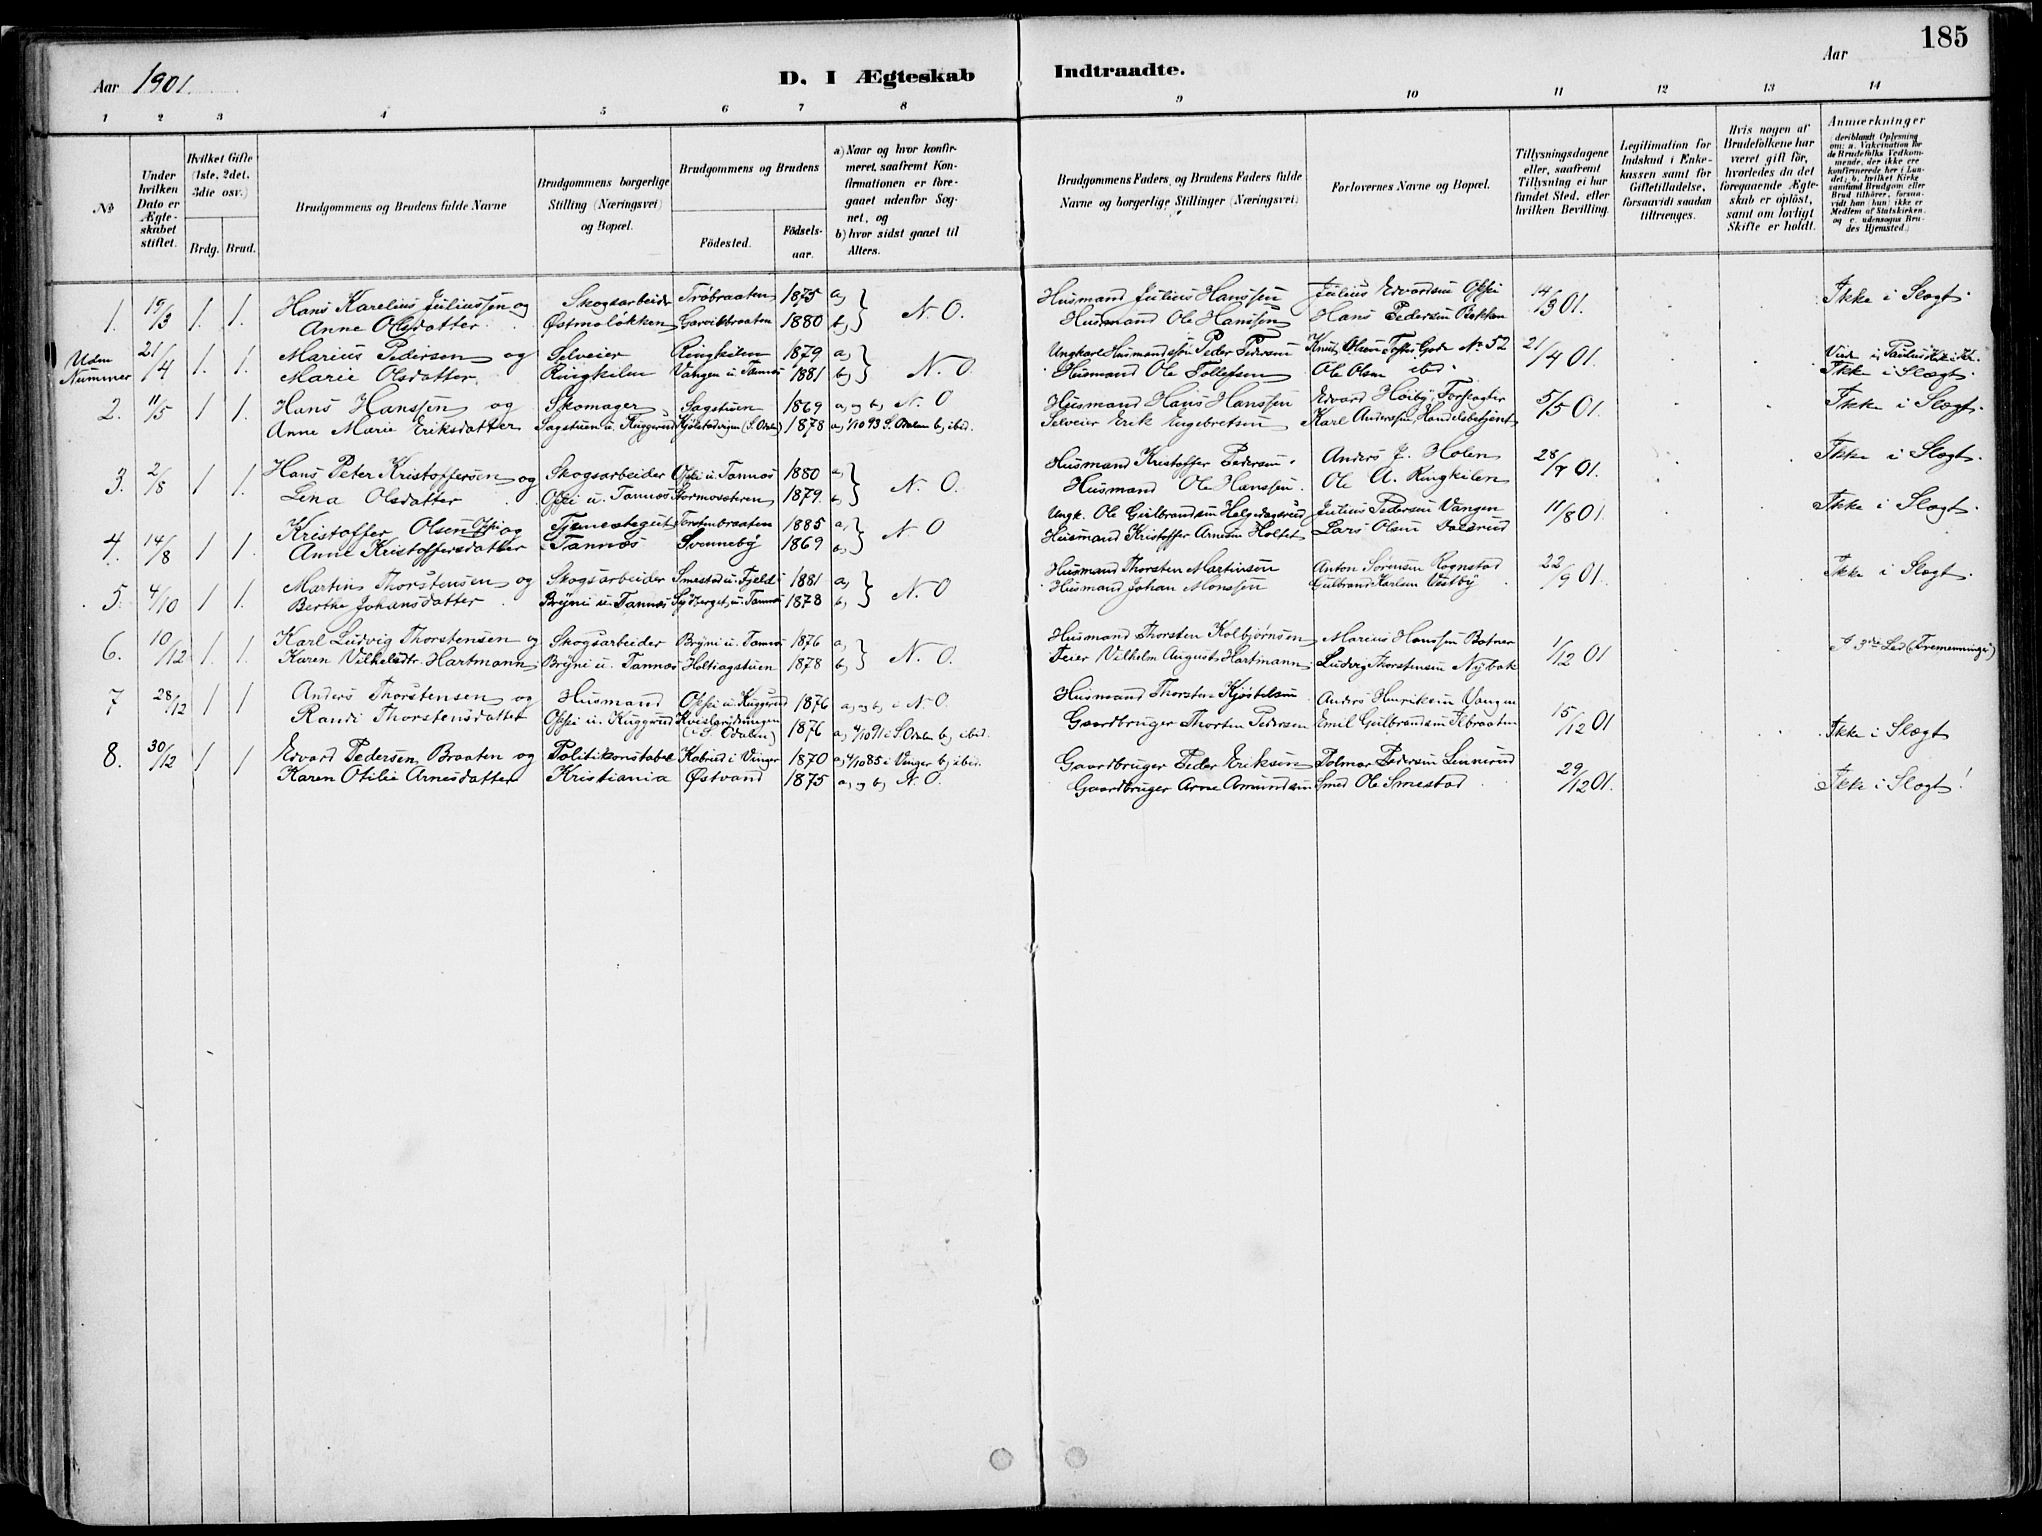 185
Aar 1901.
D. I Ægteskab Indtraadte.
Aar
1 2 3 4 5 6 7 8 9 10 11 12 13 14
№
Under hvilken Dato er Ægteskabet stiftet.
Hvilket Gifte (1ste, 2det, 3die osv.)
Brdg. Brud.
Brudgommens og Brudens fulde Navne
Brudgommens borgerlige Stilling (Næringsvei) og Bopæl.
Brudgommens og Brudens
Födested.
Födsels-aar.
a) Naar og hvor konfirmeret, saafremt Konfirmationen er foregaaet udenfor Sognet, og
b) hvor sidst gaaet til Alters.
Brudgommens Faders, og Brudens Faders fulde Navne og borgerlige Stillinger (Næringsvei)
Forlovernes Navne og Bopæl.
Tillysningsdagene eller, saafremt Tillysning ei har fundet Sted, efter hvilken Bevilling.
Legitimation for Indskud i Enkekassen samt for Giftetilladelse, forsaavidt saadan tiltrænges.
Hvis nogen af Brudefolkene har været gift för, hvorledes da det foregaaende Ægteskab er oplöst, samt om lovligt Skifte er holdt.
Anmærkninger (deriblandt Oplysning om: a. Vakcination for de Brudefolks Vedkommende, der ikke ere konfirmerede her i Landet; b. hvilket Kirkesamfund Brudgom eller Brud tilhörer, forsaavidt han (hun) ikke er Medlem af Statskirken, og c. udensogns Brudes Hjemsted.)
1. 19/3 1. 1. Hans Karelius Juliussen og Skogsarbeider Tröbraaten 1875 a) } N. O. Husmand Julius Hanssen Julius Edvardsen Oppi 14/3 01. Ikke i Slægt.
Anne Olsdatter. Østmoløkken 1880 b) Husmand Ole Hanssen Hans Pedersen
Uden Nummer 21/4 1. 1. Marius Pedersen og Selveier Ringkilen 1879 a) } N. O Ungkarl Husmandssøn Peder Pedersen Knut Olsen № 52 21/4 01.
Marie Olsdatter. Ringkilen Vangen u. Tannæs 1881 b) Husmand Ole Tollefsen Ole Olsen ibid. Ikke i Slægt.
2. 11/5 1 1. Hans Hanssen og Skomager Sagstuen 1869 a) og b) N. O Husmand Hans Hanssen Edvard Høiby, Forpagter 5/5 01. Ikke i Slægt.
Anne Marie Eriksdatter Sagstuen u. Kuggerud (S. Odalen) 1878 a) 1/10 93 S. Odalen b) ibid. Selveier Erik Engebretsen Karl Anderssen Handelsbetjent
3. 2/8 1 1. Hans Peter Kristoffersen og Skogsarbeider Oppi u. Tannæs 1880 a) } N. O. Husmand Kristoffer Pedersen. Anders J. Holen 28/7 01. Ikke i Slægt.
Lena Olsdatter Oppi u. Tannæs 1879. b) Husmand Ole Hanssen. Ole A. Ringkilen
4. 14/8 1 1. Kristoffer Olsen Oppi og Tjenestegut Torstenbraaten 1885 a) } N. O Ungk. Ole Gulbrandsen Helgedagsrud Julius Pedersen Vangen 11/8 01. Ikke i Slægt.
Anne Kristoffersdatter Tannæs Svenneby 1869 b) Husmand Kristoffer Arnesen Holtet Lars Olsen
5. 4/10 1 1. Martin Thorstensen og Skogsarbeider Smestad u. Fjeld 1881 a) } N. O Husmand Thorsten Martinsen Anton Sørensen Rognstad 22/9 01. Ikke i Slægt.
Berthe Johansdatter Bryni u. Tannæs Sydberget u. Tannæs 1878 b) Husmand Johan Monssen Gulbrand Karlsen Vestby
6. 10/12 1. 1. Karl Ludvig Thorstensen og Skogsarbeider Bryni u. Tannæs 1876 a) } N. O. Husmand Thorsten Kolbjørnsen Marius Hanssen Botner 1/12 01 I 3die Led (Tremenninge)
Karen Vilhelsdtr. Hartmann Bryni u. Tannæs 1878 b) Feier Vilhelm August Hartmann Ludvig Thorstensen Nybak
7 28/12 1 1 Anders Thorstensen og Husmand Oppi u. Kuggerud 1876 a) og b) i N. O. Husmand Thorsten Kjøstelsen Anders Henriksen Vangen 15/12 01 Ikke i Slægt
Randi Thorstensdatter Oppi u. Kuggerud (i S. Odalen) 1876 a) 4/10 91 i S. Odalen b) ibid. Gaardbruger Thorsten Pedersen Emil Gulbrandsen
8. 30/12 1 1 Edvard Pedersen Braaten og Politikonstabel i Vinger 1870 a) 4/10 85 i Vinger b) ibid. Gaardbruger Peder Eriksen Pedersen Linnerud 29/12 01. Ikke i Slægt!
Karen Otilie Arnesdatter Kristiania Østvand 1875 a) og b) N. O. Gaardbruger Arne Amundsen Smed Ole Smestad